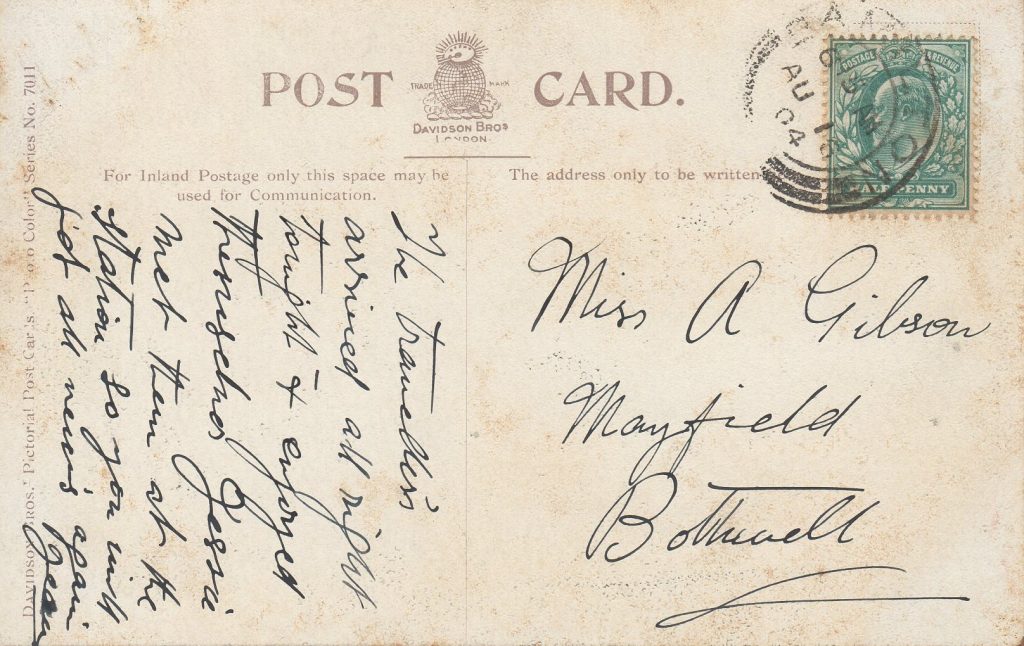 POST CARD.
TRADE MARK
DAVIDSON BROS
LONDON
POSTAGE REVENUE
HALF PENNY
AU
04
For Inland Postage only this space may be
used for Communication.
The address only to be written
The travellers
arrived all right
tonight & enjoyed
themselves Jessie
met them at the
station so you will
get all news again
Miss A Gibson
Mayfield
Bothwell
DAVIDSON BROS.' Pictorial Post Cards. Color" Series No. 7011